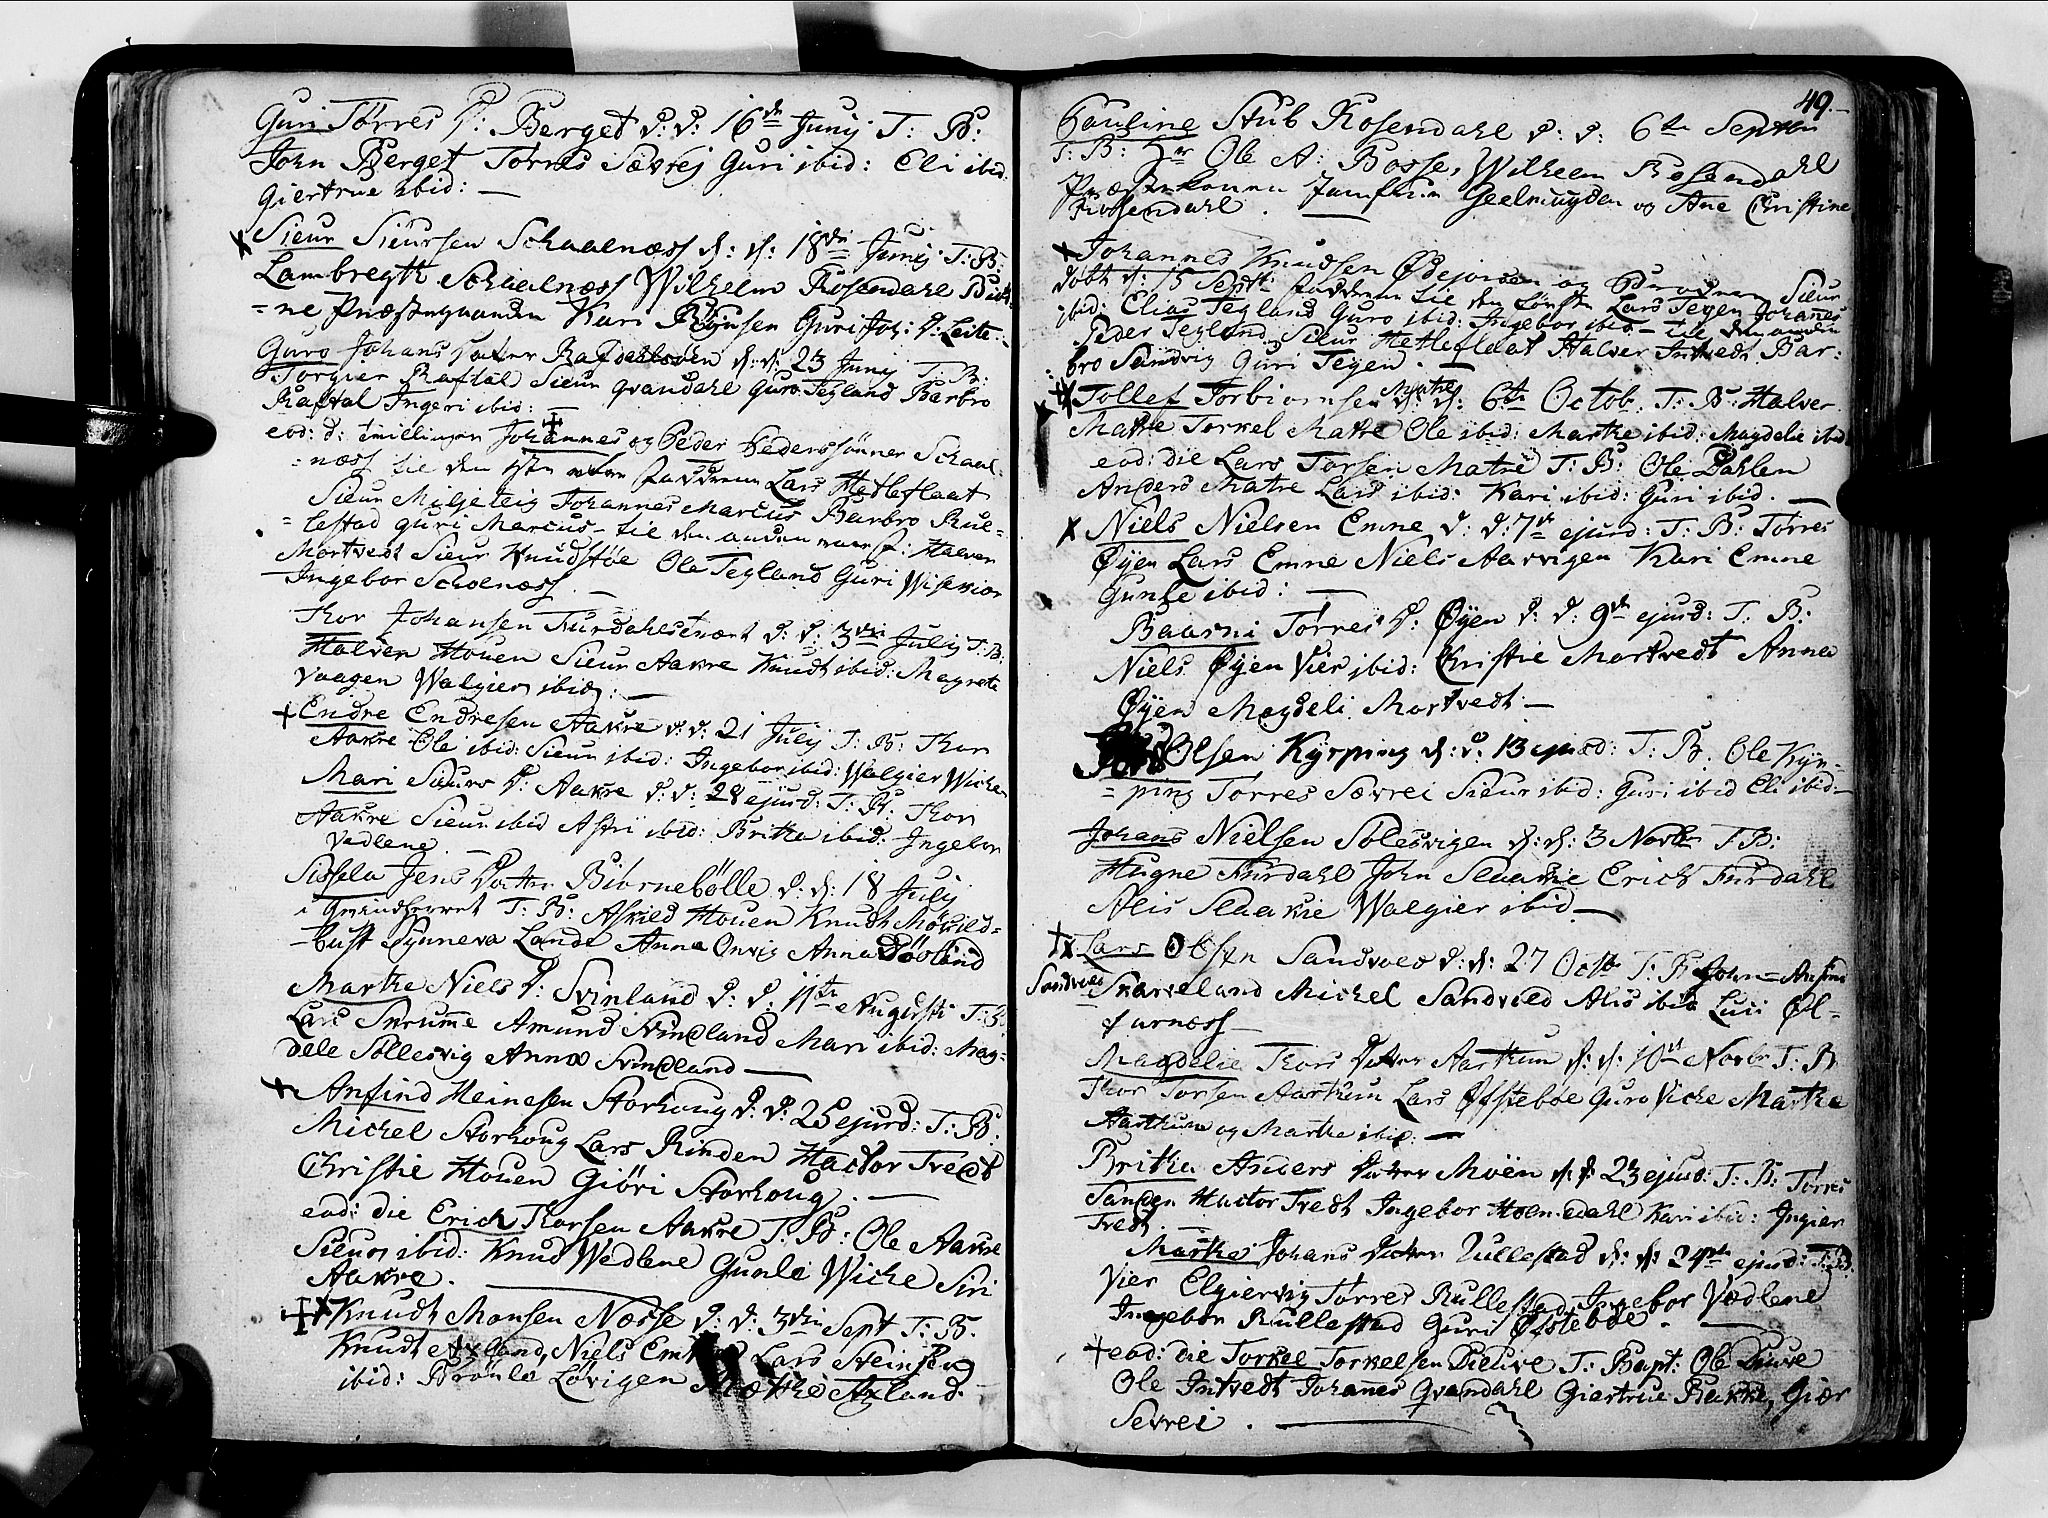 Guri Tørres D: Berget d: d: 16de Junij T: B:
John Berget Torres Sævrej Guri ibid: Eli ibid:
Giertrue ibid: —
Sieur Sieursen Schaalnæss d: d: 18de Junij T: B:
Lambregth Schaalnæss Wilhelm Rosendahl Birth-
=ne Præstegaarden Kari Guri Joh: D: Leite
Guro Johans Dotter d: d: 23 Junij T: B:
Torgier Raftal Sieur Qvandahl Guro Tegland Barbro
Raftal Ingeri ibid: —
eod: d: tvillinger Johannes og Peder Pederssønner Schaal-
=næss til den Faddrene Lars Hetleflaat
Sieur Miljeteig Johannes Marcus Barbro Rul-
=lestad Guri Marcus – til den anden vare f: Halver
Mortvedt Sieur Knudstøe Ole Tegland Guri
Ingebor Schoenæss. —
Thor Johansen Furdahls d: d: 3die Julij T: B:
Halver Houen Sieur Aakre Knudt ibid: Magrete
Vaagen Walgier ibid: —
Endre Endresen Aakre d: d: 21 Julij T: B: Thor
Aakre Ole ibid: Sieur ibid: Ingebor ibid: Walgier Wiche
Mari Sieurs D: Aakre d: d: 28 ejusd: T: B: Thor
Aakre Sieur ibid Astri ibid: Britha ibid: Ingebor
Vadlene —
Sissela Jens Datter Biørnebölle d: d: 18 Julij
i T: B: Askild Houen Knudt
-bust Synneva Lande Anna Onvig Anna
Marthe Niels D: Svinland d: d: 11te Augusti T: B:
Lars Skrumme Amund Svindland Mari ibid: Mag-
dele Söllesvig Anna Svindland —
Anfind Heinesen Storhoug d: d: 25 ejusd: T: B:
Michel Storhoug Lars Rinden Hactor Tvedt
Christie Houen Giöri Storhoug. —
eod: die Erich Thorsen Aakre T: B: Ole Aakre
Sieur ibid: Knud Wedlene Gunle Wiche Siri
Aakre. —
Knudt Monsen Næsse d: d: 3die Sept T: B.
Knudt Axland, Niels Lars
ibid: Brönle Lövigen Axland.
49.
Pauline Stub Rosendahl d: d: 6te Septem
T: B: Hr Ole A: Bosse, Wilhelm Rosendahl
Præstekonen Jomfrue Geelmuyden og Ane Christine
Rosendahl. —
Johannes Knudsen Ødejorden og Sieur
döbt d: 15 Septr: Faddrene til den første Lars Tegen Johanes
ibid: Elias Tegland Guro ibid: Ingebor ibid – til den anden
Peder Tegland Sieur Hetleflaat Halver Intvedt Bar:
bro Sandvig Guri Tegen. —
Tollef Torbiornsen Matre d: 6te Octob. T: B: Halver
Matre Torkel Matre Ole ibid: Marthe ibid: Magdelie ibid
eod: die Lars Torsen Matre T: B: Ole Dahlem
Anders Matre Lars ibid: Kari ibid: Guri ibid. —
Niels Nielsen Emne d: d: 7de ejusd: T: B: Torres
Øyen Lars Emne Niels Aarvigen Kari Emne
Gunle ibid: —
Baarni Tørres D: Øyen d: d: 9de ejusd: T: B:
Niels Øyen Vier ibid: Christie Mortvedt Anna
Øyen Magdeli Mortvedt —
Olsen Kyrping d: d: 13 ejusd: T: B. Ole Kyr-
= ping Torres Sævrei Sieur ibid: Guri ibid Eli ibid —
Johans Nielsen Solesvigen d: d: 3 Novbr T: B:
Hugne Furdahl John Slaakie Erich Furdahl
Alis Slaakie Walgier ibid —
Lars Olsen Sandvold d: d: 27 Octb T: B: John
Sandvold Skarveland Michel Sandvold Alis ibid Luci Øl-
farnæss —
Magdelie Thors Datter Aarthun d: d: 10de Novbr T: B
Thor Torsen Aarthun Lars Øfsteböe Guro Viche Marthe
Aarthun og Marthe ibid: —
Britha Anders Datter Moën d: d: 23 ejusd: T: B: Torres
Sanden Hactor Tvedt Ingebor Kari ibid: Ingier
Tvedt. —
Marthe Johans Datter Rullestad d: d: 24de ejusd: T: B.
Vier Elgiervig Torres Rullestad Ingebor Vedlene
Ingebor Rullestad Guri Øfsteböe. —
eod: die Torkel Torkelsen T: Bapt: Ole
Ole Intvedt Johannes Qvandahl Giertrue Bakke, Giør
Sevrei. —